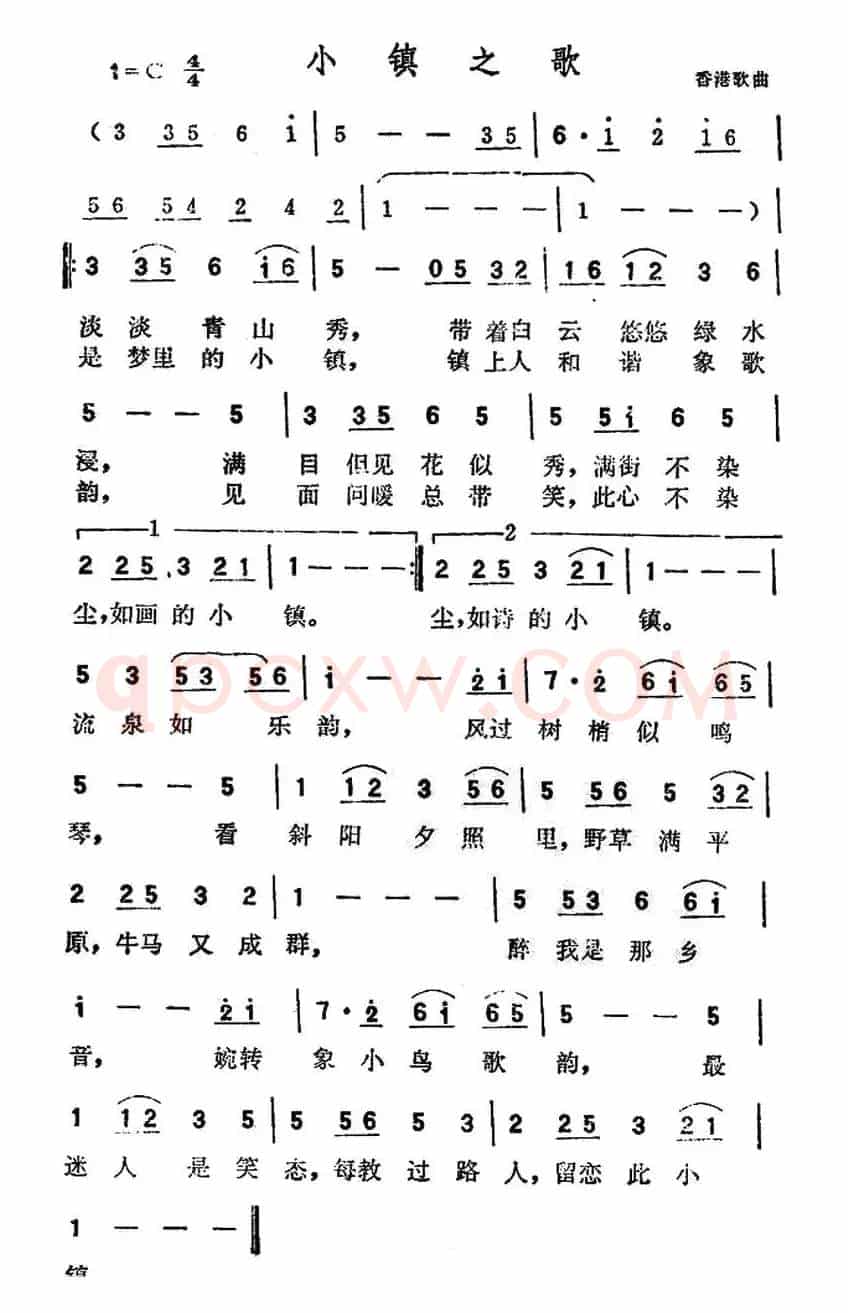 小镇之歌
1=C 4/4 香港歌曲
(3 35 6 i | 5 — — 35 | 6· i 2 i6 |
56 54 2 4 2 | 1 — — — | 1 — — —) |
‖: 3 35 6 i6 | 5 — 05 32 | 16 12 3 6 |
淡淡青山秀， 带着白云悠悠绿水
是梦里的小镇， 镇上人和谐象歌
5 — — 5 | 3 35 6 5 | 5 5i 6 5 |
浸， 满目但见花似秀，满街不染
韵， 见面问暖总带笑，此心不染
1 2
2 25 3 21 | 1 — — — :‖ 2 25 3 21 | 1 — — — |
尘，如画的小镇。 尘，如诗的小镇。
qpcxw.COM
5 3 53 56 | i — — 2i | 7· 2 6i 65 |
流泉如乐韵， 风过树梢似鸣
5 — — 5 | 1 12 3 56 | 5 56 5 32 |
琴， 看斜阳夕照里，野草满平
2 25 3 2 | 1 — — — | 5 53 6 6i |
原，牛马又成群， 醉我是那乡
i — — 2i | 7· 2 6i 65 | 5 — — 5 |
音， 婉转象小鸟歌韵， 最
1 12 3 5 | 5 56 5 3 | 2 25 3 21 |
迷人是笑态，每教过路人，留恋此小
1 — — — ‖
镇